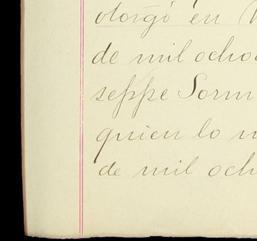 otorgó en
de mil ocho
seppe Sorm
quien lo
de mil och